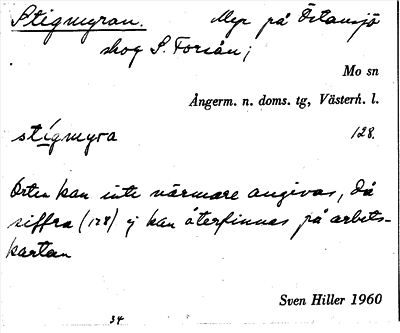 Stigmyran. Myr på Östansjö
skog S. Forsån;
Mo sn
Ångerm. n. doms. tg, Västerh. l.
stígmyra 128.
Orten kan inte närmare angivas, då
siffra (128) ej kan återfinnas på arbets-
kartan
Sven Hiller 1960
34